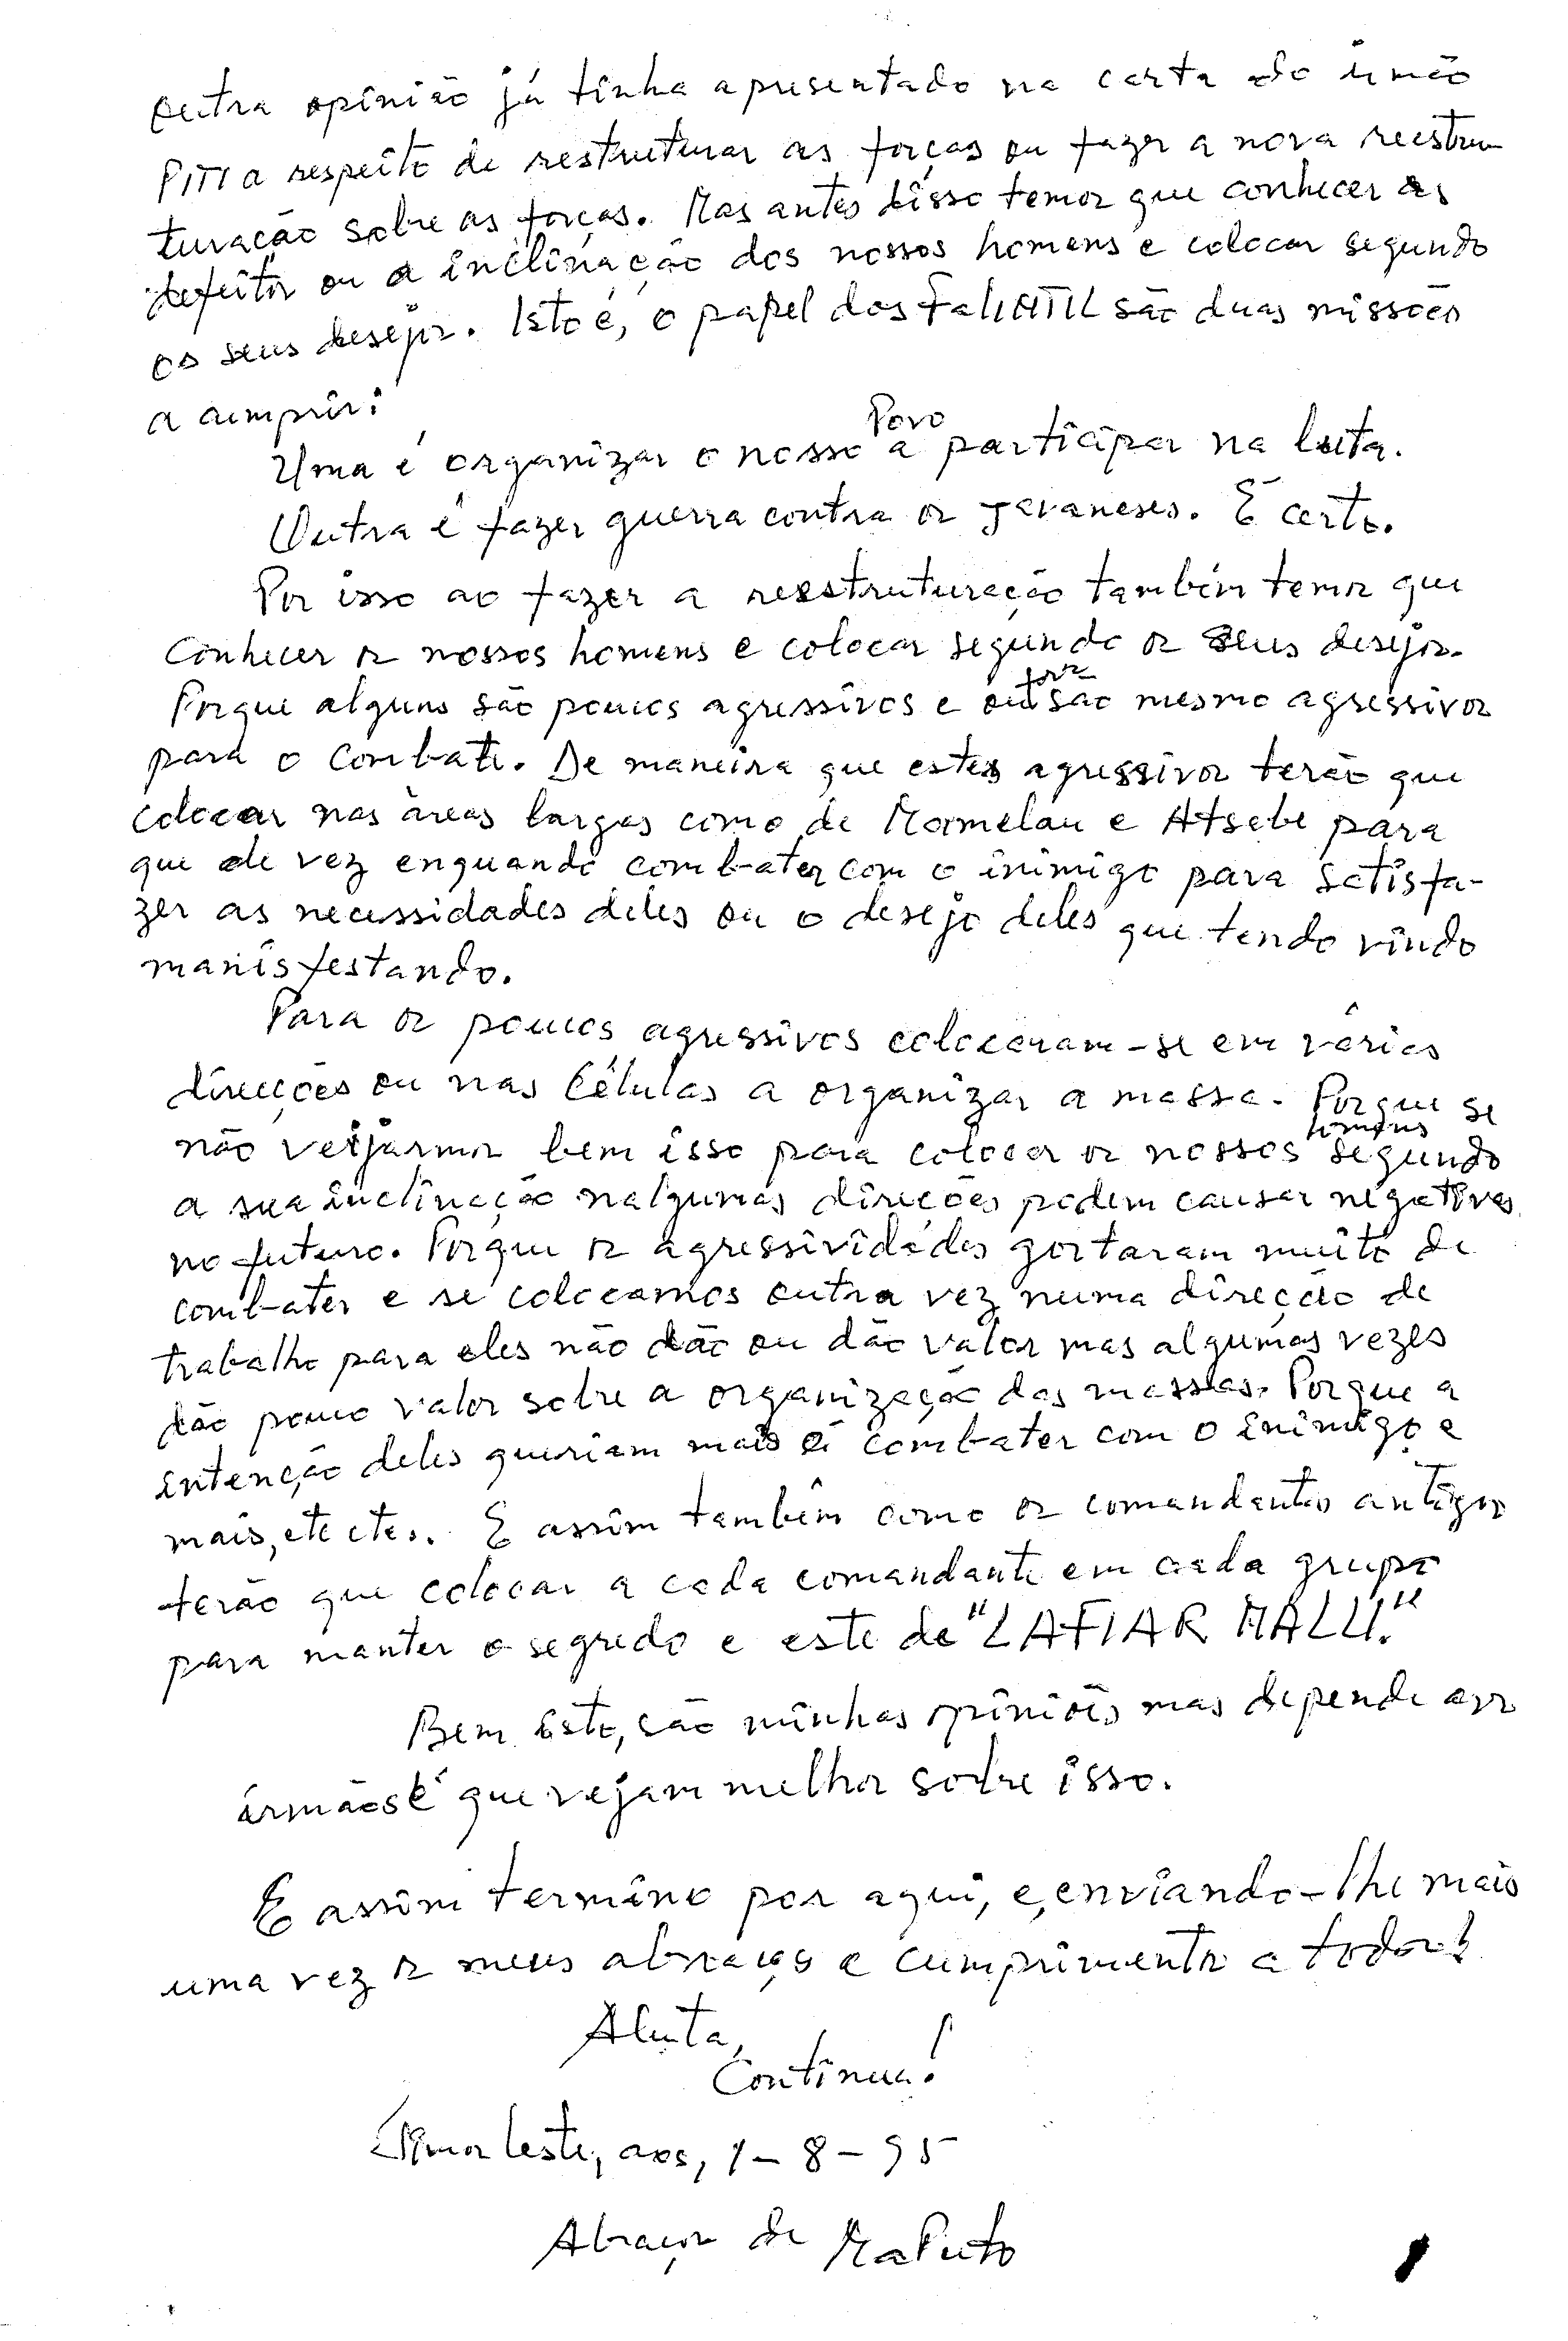 Outra opinião já tinha apresentado na carta do irmão
PITI a respeito de restruturar as forças ou fazer a nova reestru-
turação sobre as forças. Mas antes disso temos que conhecer os
defeitos ou a inclinação dos nossos homens e colocar segundo
os seus desejos. Isto é, o papel das FALINTIL são duas missões
a cumprir:
Uma é organizar o nosso Povo a participar na luta.
Outra é fazer guerra contra os javaneses. É certo.
Por isso ao fazer a reestruturação também temos que
conhecer os nossos homens e colocar segundo os seus desejos.
Porque alguns são poucos agressivos e outros são mesmo agressivos
para o combate. De maneira que estes agressivos terão que
colocar nas áreas largas como de Mamelau e Atsabe para
que de vez enquando combater com o inimigo para satisfa-
zer as necessidades deles ou o desejo deles que tendo vindo
manisfestando.
Para os poucos agressivos colocaram-se em vários
direcções ou nas Células a organizar a massa. Porque se
não veijarmos bem isso para colocar os nossos homens segundo
a sua inclinação nalgumas direções podem causar negativas
no futuro. Porque os agressividades gostaram muito de
combater e se colocamos outra vez numa direcção de
trabalho para eles não dão ou dão valor mas algumas vezes
dão pouco valor sobre a organização das massas. Porque a
intenção deles queriam mais é combater com o inimigo e
mais, etc etc.. E assim também como os comandantes antigos
terão que colocar a cada comandante em cada grupo
para manter o segredo e este de "LAFIAR MALU."
Bem isto, são minhas opiniões mas depende aos
irmãos é que vejam melhor sobre isso.
E assim termino por aqui, e, enviando-lhe mais
uma vez os meus abraços e cumprimentos a todos!
Aluta,
Continua!
Timor Leste, aos, 1-8-95
Abraços de MaPuto